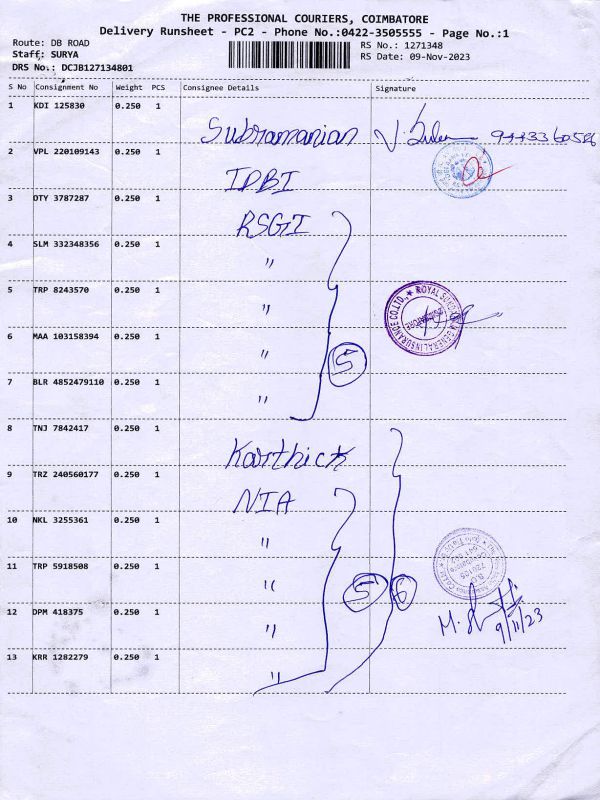 THE PROFESSIONAL COURIERS, COIMBATORE
Delivery Runsheet - PC2 - Phone No.:0422-3505555 - Page No.:1
Route: DB ROAD
RS No.: 1271348
Staff: SURYA
RS Date: 09-Nov-2023
DRS No.: DCJB127134801
S No Consignment No Weight PCS Consignee Details Signature
1 KDI 125830 0.250 1 Subramanian
2 VPL 220109143 0.250 1 IDBI
3 DTY 3787287 0.250 1 RSGI
4 SLM 332348356 0.250 1 "
5 TRP 8243570 0.250 1 "
ROYAL SUNDARAM GENERAL INSURANCE CO. LTD.,
6 MAA 103158394 0.250 1 "
5
7 BLR 4852479110 0.250 1 "
8 TNJ 7842417 0.250 1 Karthick
9 TRZ 240560177 0.250 1 NIA
10 NKL 3255361 0.250 1 "
11 TRP 5918508 0.250 1 "
5 6
12 DPM 418375 0.250 1 "
9/11/23
13 KRR 1282279 0.250 1 "